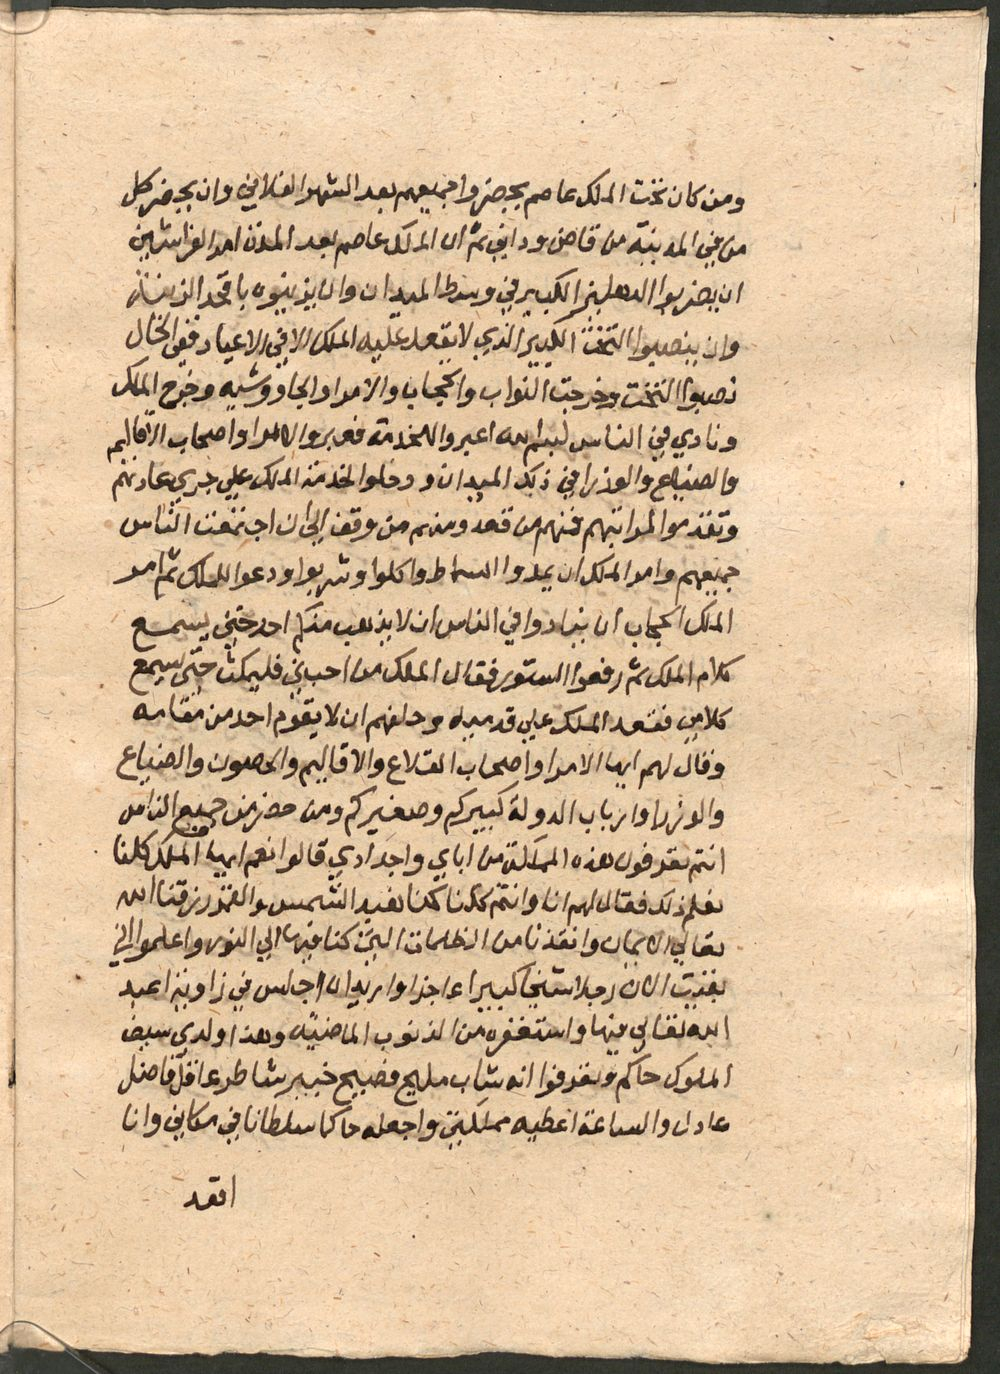 ومن كان تحت الملك عاصم يحضروا جميعهم بعد الشهر الفلاني وان يحضر كل
من في المدينة من قاص وداني ثم ان الملك عاصم بعد المدة امر الفراشين
ان يضربوا الدهليز الكبير في وسط الميدان وان يزينوه بافخر الزينة
وان ينصبوا التخت الكبير الذي لا يقعد عليه الملك الا في الاعياد ففي الحال
نصبوا التخت وخرجت النواب والحجاب والامرا والجاووشيه وخرج الملك
ونادي في الناس لبسم الله اعبروا للخدمة فعبروا الامرا واصحاب الاقاليم
والضياع والوزرا في ذلك الميدان ودخلوا لخدمة الملك علي جري عادتهم
وتقدموا لمراتبهم فمنهم من قعد ومنهم من وقف الي ان اجتمعت الناس
جميعهم وامر الملك ان يمدوا السماط واكلوا وشربوا ودعوا للملك ثم امر
الملك الحجاب ان ينادوا في الناس ان لا يذهب منكم احد حتي يسمع
كلام الملك ثم رفعوا الستور فقال الملك من احبني فليمكث حتي يسمع
كلامي فقعد الملك علي قدميه وحلفهم ان لا يقوم احد من مقامه
وقال لهم ايها الامرا واصحاب القلاع والاقاليم والحصون والضياع
والوزرا وارباب الدولة كبيركم وصغيركم ومن حضر من جميع الناس
انتم تعرفون هذه المملكة من اباي واجدادي قالوا نعم ايها الملك كلنا
نعلم ذلك فقال لهم انا وانتم كلنا كنا نعبد الشمس والقمر رزقنا الله
تعالي الايمان وانقذنا من الظلمات التي كنا فيها الي النور واعلموا اني
بقيت الان رجلا شيخا كبيرا عاجزا واريد ان اجلس في زاوية اعبد
الله تعالي فيها واستغفره من الذنوب الماضية وهذا ولدي سيف
الملوك حاكم وتعرفوا انه شاب مليح فصيح خبير شاطر عاقل فاضل
عادل والساعة اعطيه مملكتي واجعله حاكما سلطانا في مكاني وانا
اقعد